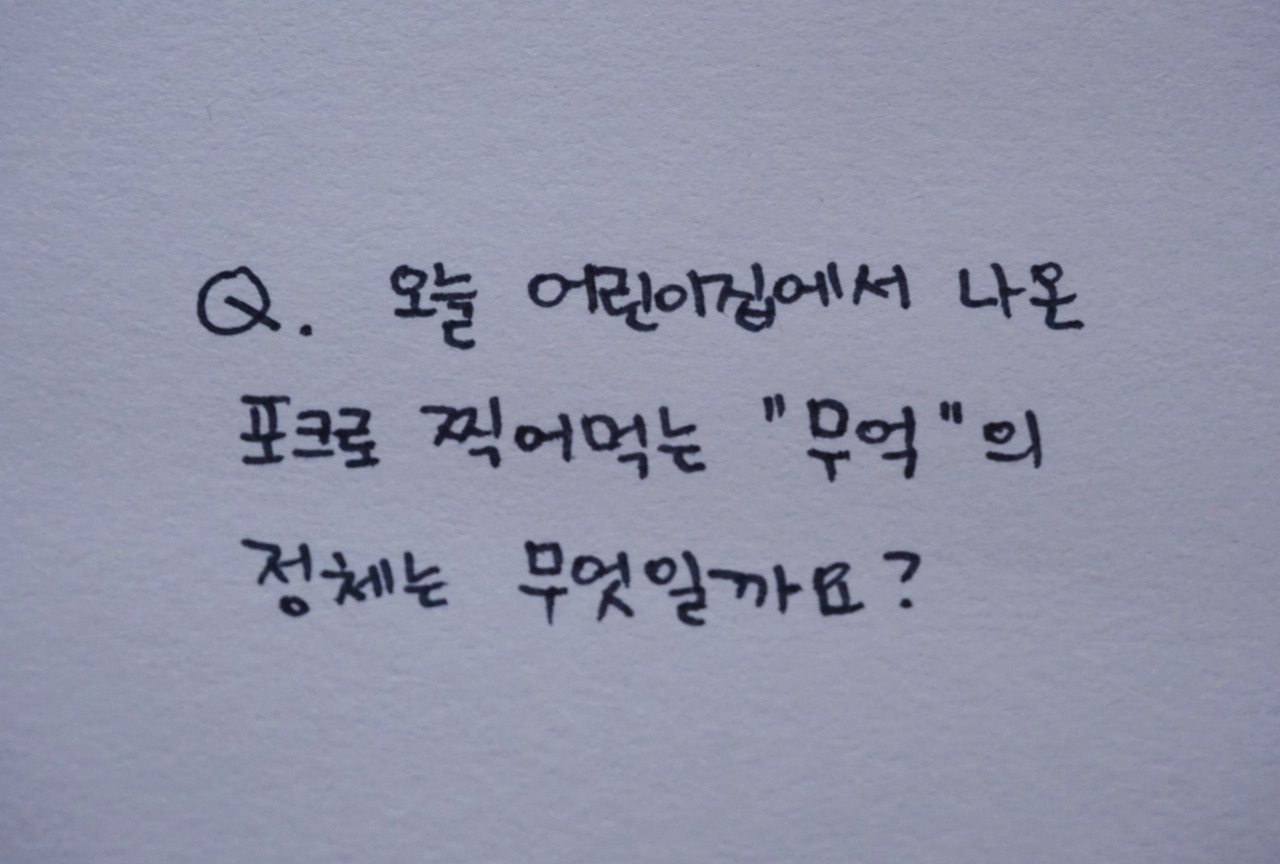 Q. 오늘 어린이집에서 나온
포크로 찍어먹는 "무억"의
정체는 무엇일까요?